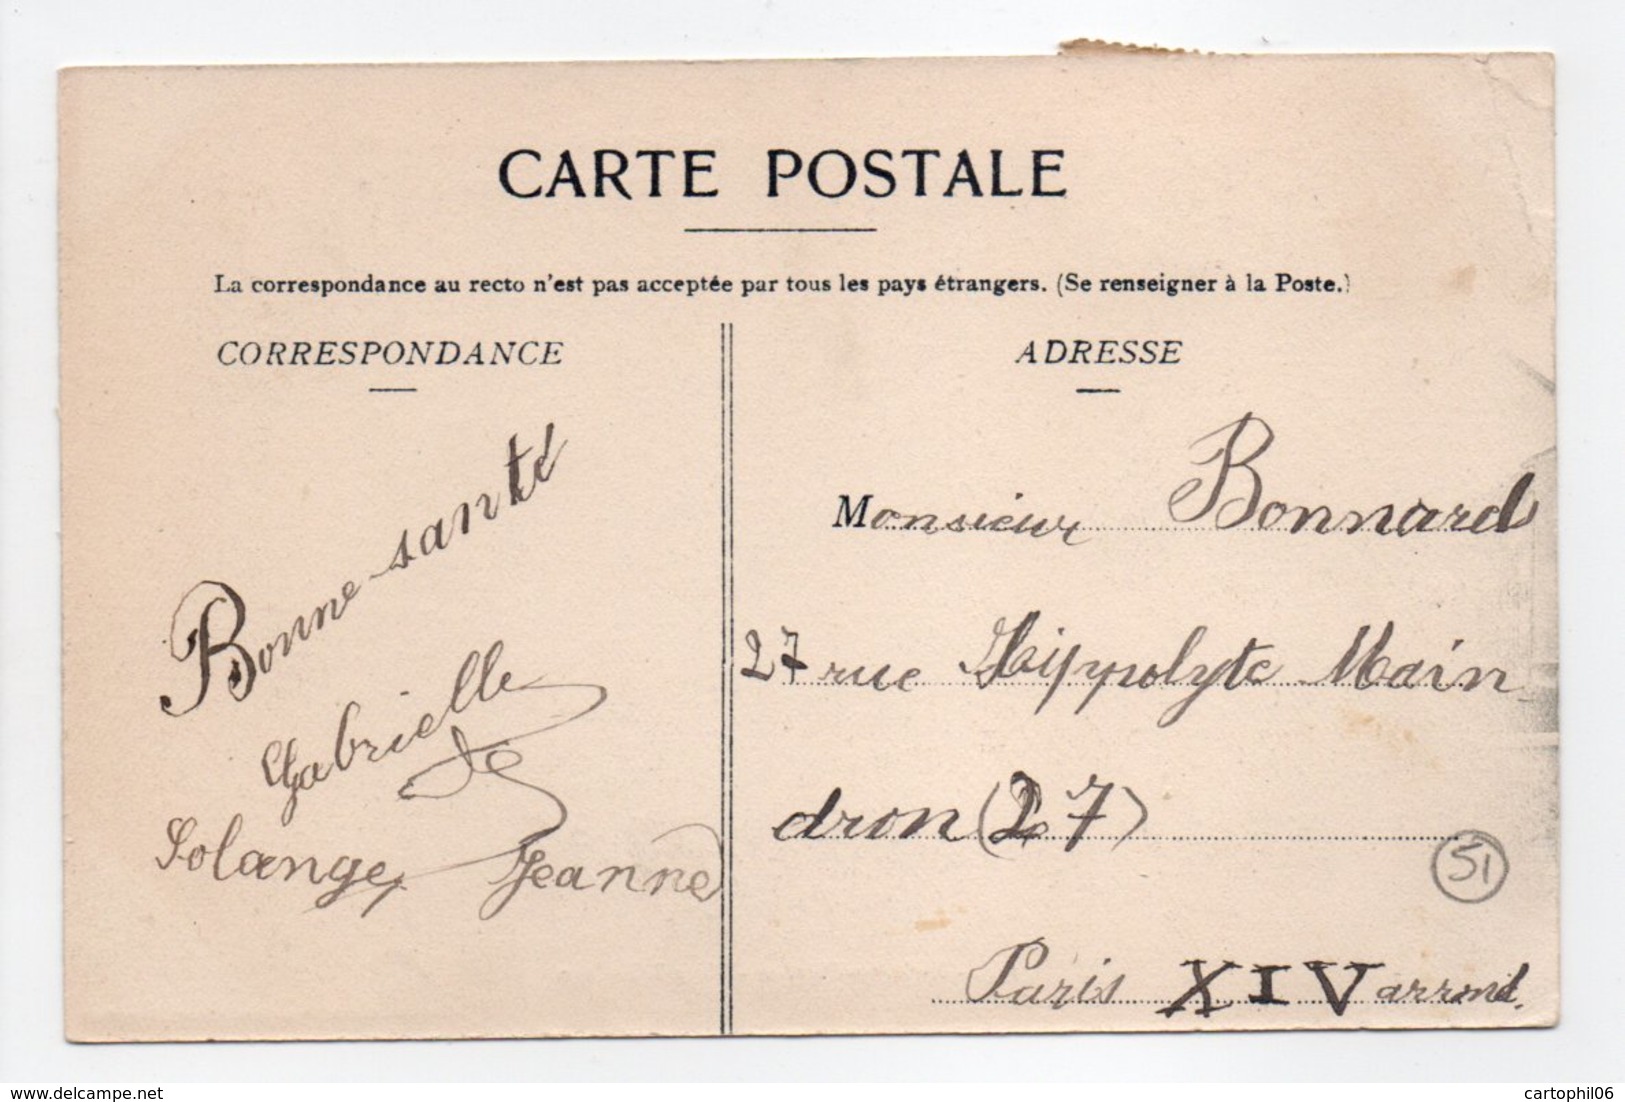 CARTE POSTALE
La correspondance au recto n'est pas acceptée par tous les pays étrangers. (Se renseigner à la Poste.)
CORRESPONDANCE
Bonne santé
Gabrielle
Solange, Jeanne
ADRESSE
Monsieur Bonnard
27 rue Hippolyte Main
dron (27)
51
Paris XIV arrond.
delcampe.net
cartophil06